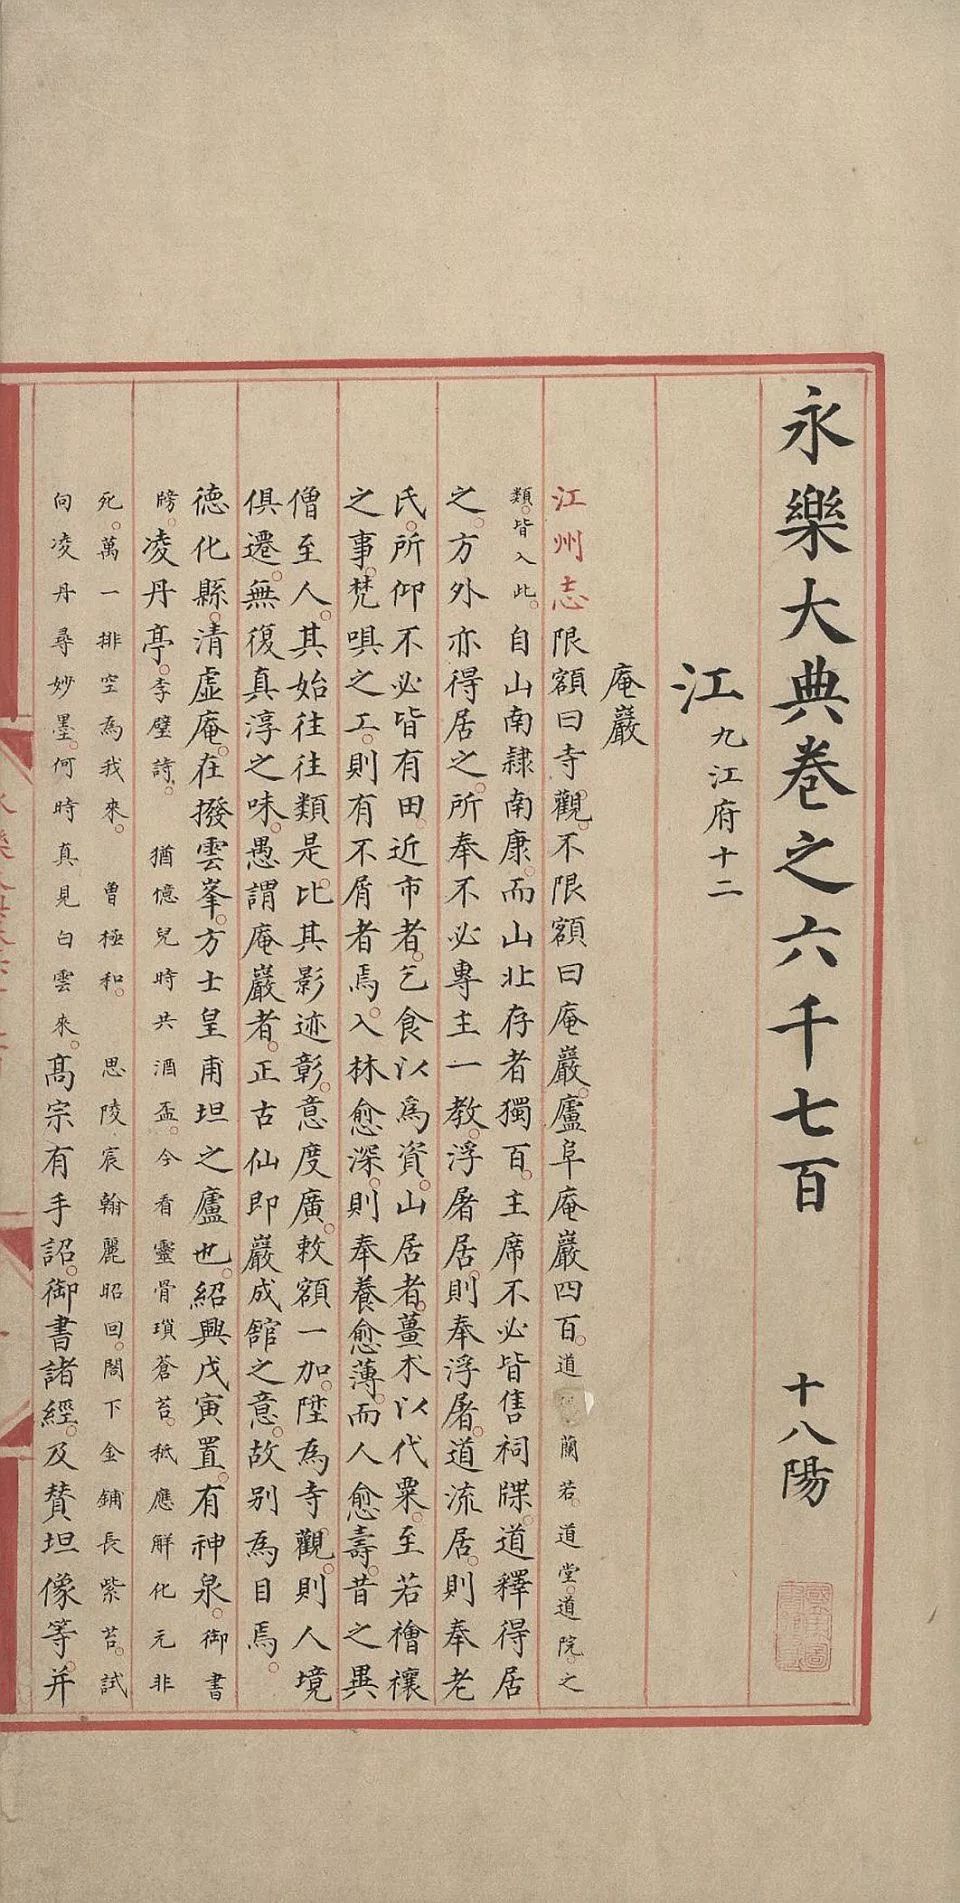 永樂大典卷之六千七百 十八陽
江 九江府十二
庵巖
江州志限額曰寺觀。不限額曰庵巖。廬阜庵巖四百。道 蘭若。道堂。道院。之
類。皆入此。自山南隸南康。而山北存者獨百。主席不必皆售祠牒。道釋得居
之。方外亦得居之。所奉不必專主一教。浮屠居。則奉浮屠。道流居。則奉老
氏。所仰不必皆有田。近市者。乞食以爲資。山居者。薑朮以代粟。至若禬禳
之事。梵唄之工。則有不屑者焉。入林愈深。則奉養愈薄。而人愈壽。昔之異
僧至人。其始往往類是。比其影迹彰。意度廣。敕額一加。陞為寺觀。則人境
俱遷。無復真淳之味。愚謂庵巖者。正古仙即巖成館之意。故别為目焉。
德化縣。清虛庵。在撥雲峯。方士皇甫坦之廬也。紹興戊寅置。有神泉。御書
牓。凌丹亭。李壁詩。 猶億兒時共酒盃。今看靈骨瑣蒼苔。秪應解化元非
死。萬一排空為我來。 曾極和。 思陵宸翰麗昭回。閤下金鋪長紫苔。試
向凌丹尋妙墨。何時真見白雲來。髙宗有手詔。御書諸經。及賛坦像等。并